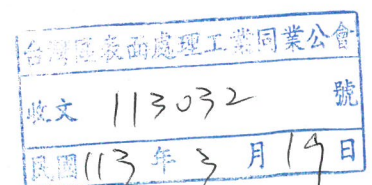 台灣區表面處理工業同業公會
收文 113032 號
民國 113 年 3 月 19 日